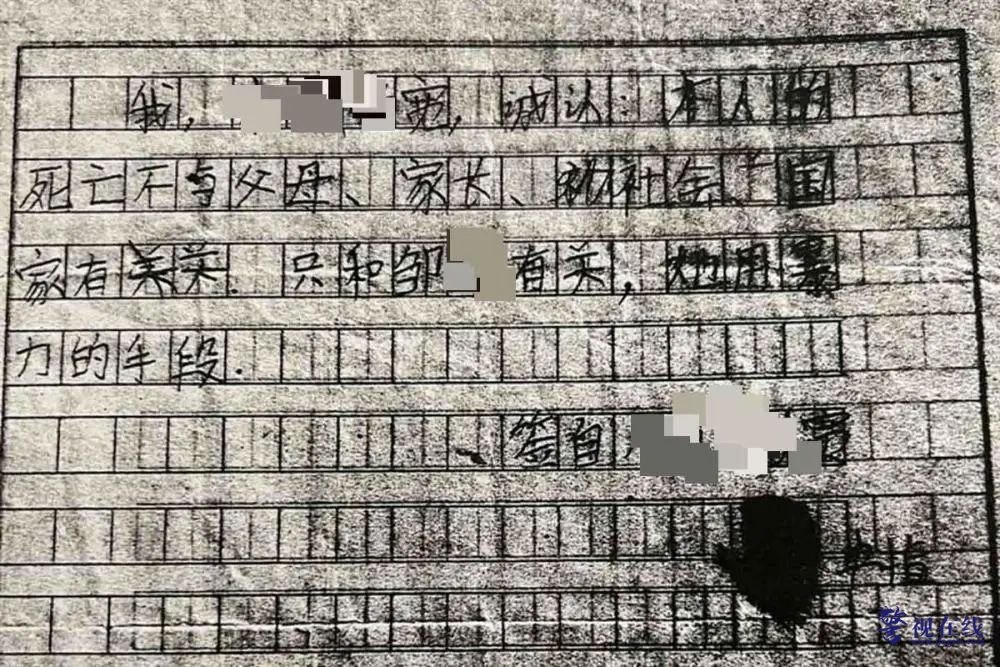 我, 宽,诚认:本人的
死亡不与父母、家长、社会、国
家有关.只和邹 有关,她用暴
力的手段.
签自,
指
警视在线